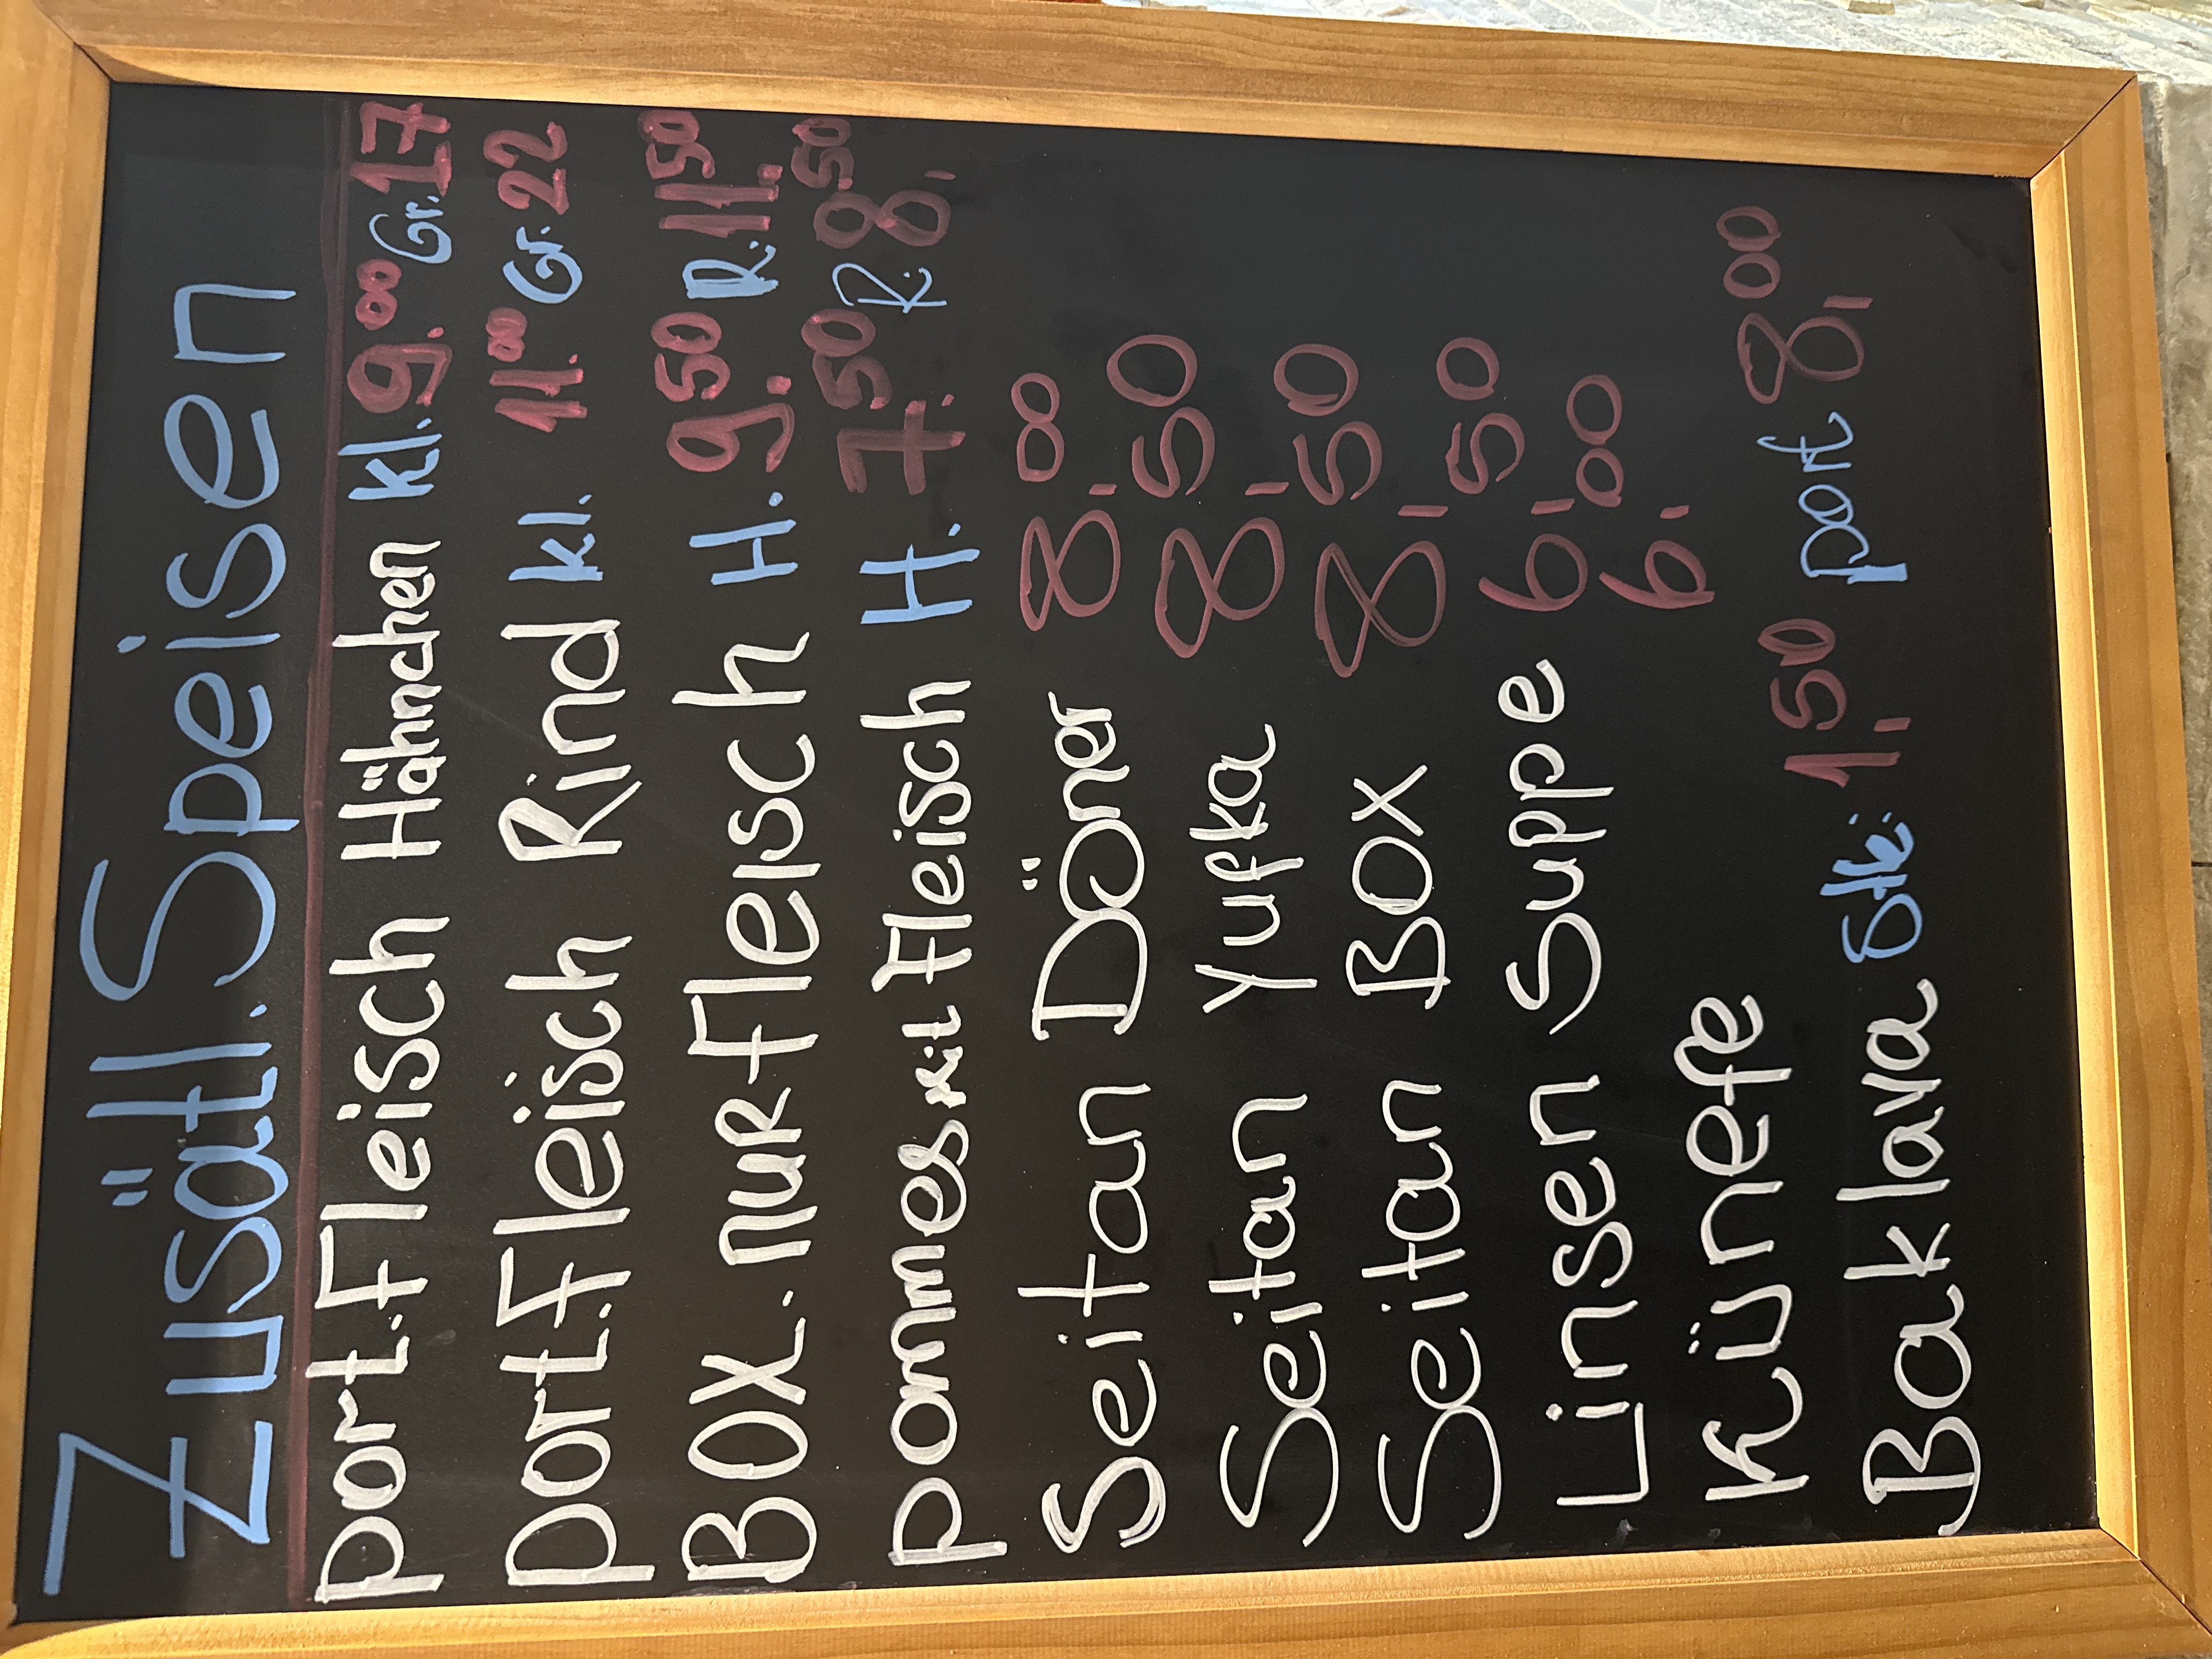 Zusätl. Speisen
port. Fleisch Hähnchen kl. 9.00 Gr. 17
port. Fleisch Rind kl. 11.00 Gr. 22
BOX. nur Fleisch H. 9.50 R. 11.50
pommes mit Fleisch H. 7.50 R. 8,50
Seitan Döner 8,00
Seitan Yufka 8,50
Seitan BOX 8,50
Linsen Suppe 6,50
Künefe 6,00
Baklava Stk: 1,50 port 8,00